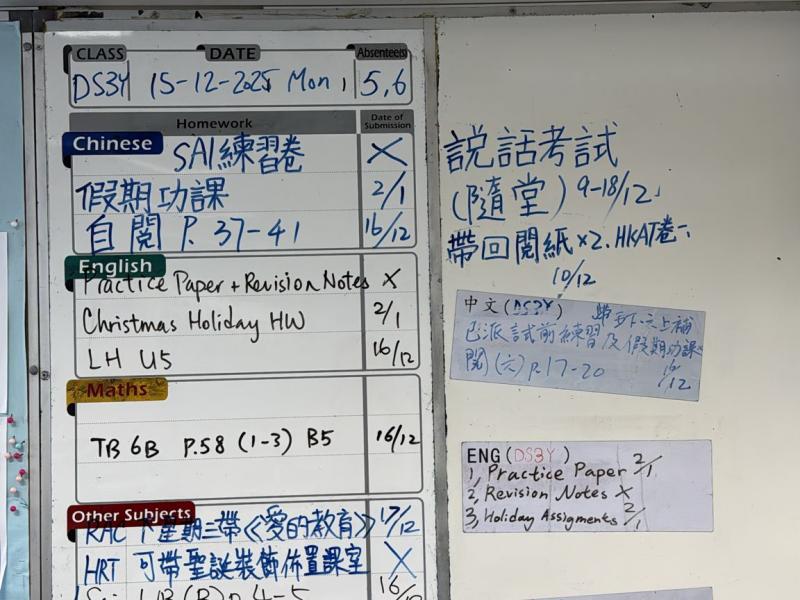 CLASS DATE Absentee(s)
DS3Y 15-12-2025 Mon, 5,6
Homework Date of Submission
Chinese SA1練習卷 X
假期功課 2/1
自閱 P. 37-41 16/12
English
Practice Paper + Revision Notes X
Christmas Holiday HW 2/1
LH U5 16/12
Maths
TB 6B P.58 (1-3) B5 16/12
Other Subjects
RAC 下星期三帶《愛的教育》 17/12
HRT 可帶聖誕裝飾佈置課室 X
說話考試
(隨堂) 9-18/12
帶回閱紙×2. HKAT卷一
10/12
中文(DS3Y)
已派試前練習及假期功課
閱(六) P.17-20 16/12
ENG (DS3Y)
1, Practice Paper 2/1
2, Revision Notes X
3, Holiday Assigments 2/1